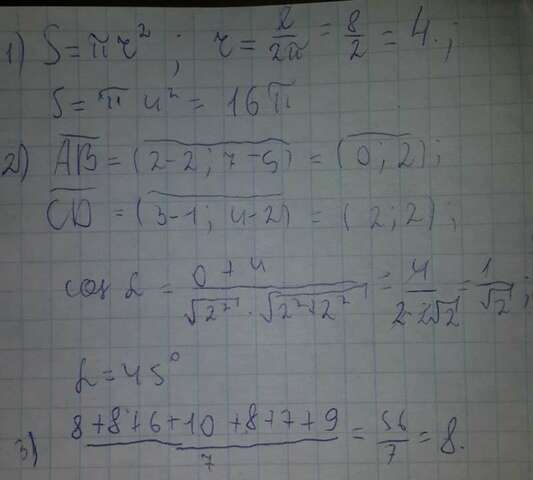 1) S = πr²; r = l/2π = 8/2 = 4.;
S = π 4² = 16π
2) AB = (2-2; 7-5) = (0; 2);
CD = (3-1; 4-2) = (2; 2);
cos α = (0+4)/(√2² · √2²+2²) = 4/(2·2√2) = 1/√2;
α = 45°
3) (8+8+6+10+8+7+9)/7 = 56/7 = 8.